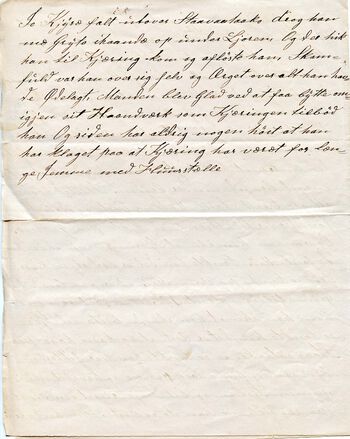 Jo Kjyræ falt udover Staavanhaako drog han
me Gryto ihaandæ op under Ljoren Og der hik
han til Kjæring kom og afløste ham, Skam-
fuld var han over sig selv og Ærget over alt han hav
de Ødelagt, Manden blev Glad ved at faa bytte om
igjen sit Haandværk som Kjæringen tilbød
han Og siden har aldrig nogen hørt at han
har klaget paa at Kjæring har været for læn
ge Jemme med Fluurstælle